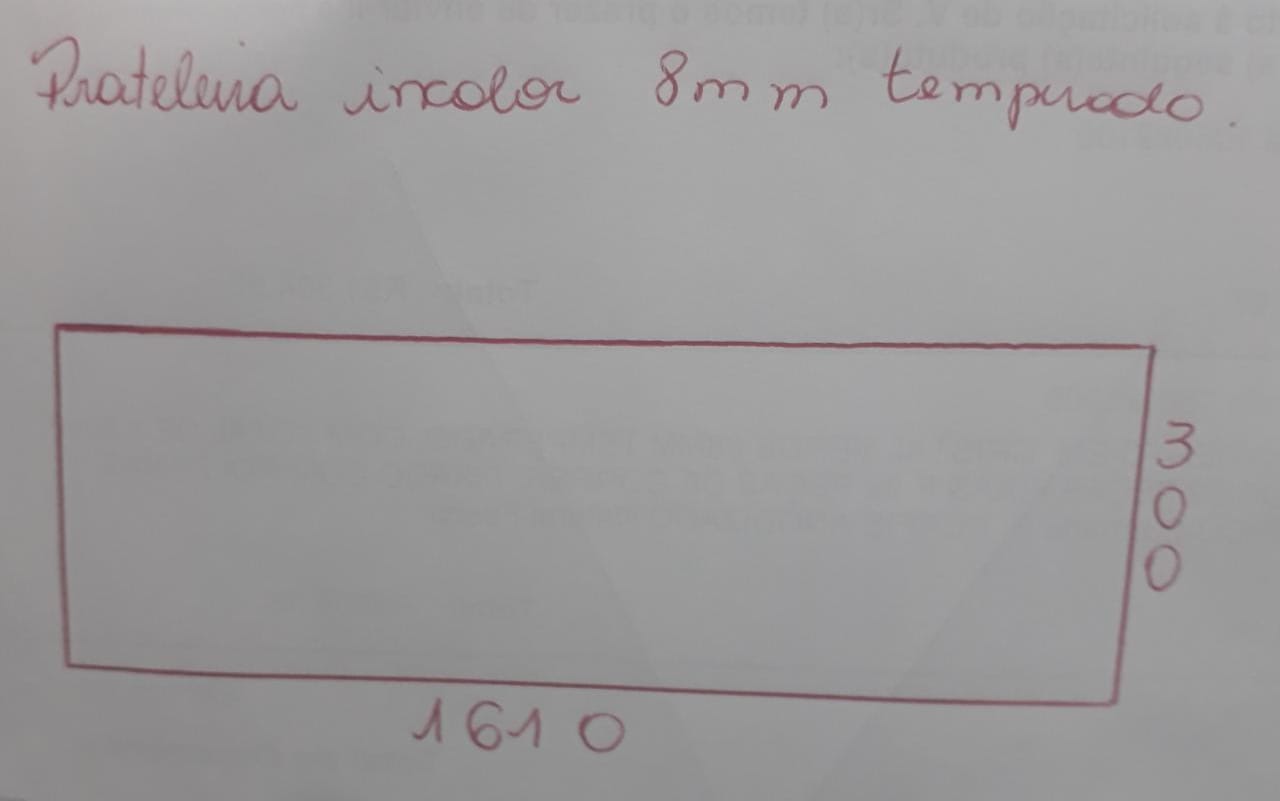 Prateleira incolor 8mm temperado.
3
0
0
1610